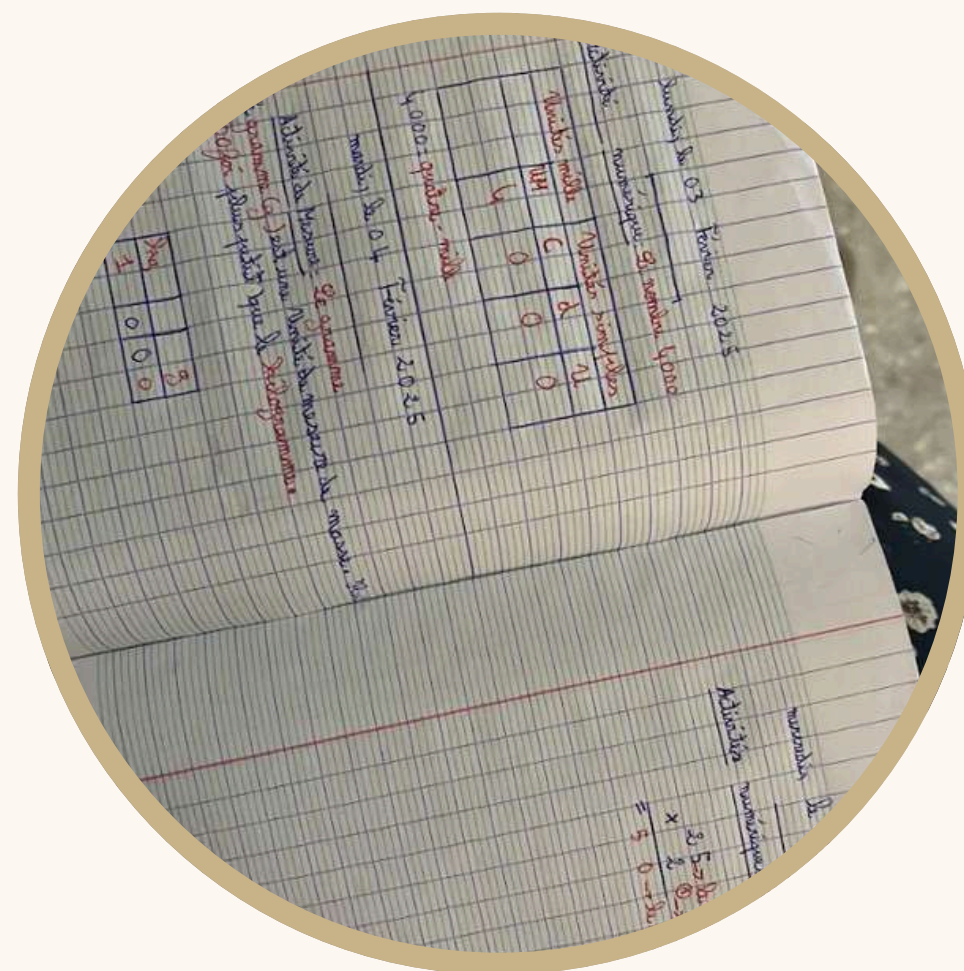 lundi, le 03 Février 2025
Activité numérique: Le nombre 4000
Unités mille Unités simples
UM C d u
4 0 0 0
4000 = quatre-mille
mardi, le 04 Février 2025
Activité de Mesure: Le gramme
gramme (g) est une Unité de mesure de masse. Il
plus petit que le kilogramme.
kg g
1 0 0 0
mercredi, le
Activités numériques
25 → le
x 2
= 5 0 → le